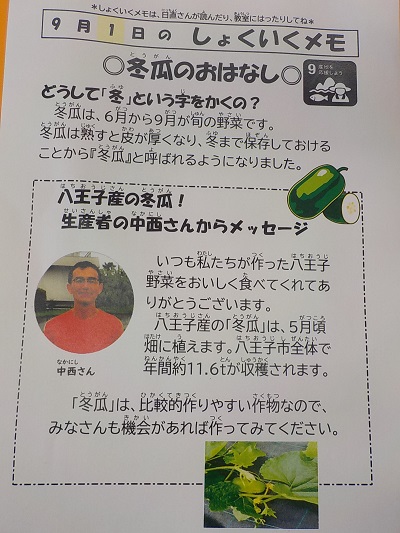 *しょくいくメモは、日直さんが読んだり、教室にはったりしてね*
9月1日のしょくいくメモ
○冬瓜のおはなし○
どうして「冬」という字をかくの？
冬瓜は、6月から9月が旬の野菜です。
冬瓜は熟すと皮が厚くなり、冬まで保存しておける
ことから『冬瓜』と呼ばれるようになりました。
八王子産の冬瓜！
生産者の中西さんからメッセージ
いつも私たちが作った八王子
野菜をおいしく食べてくれてあ
りがとうございます。
八王子産の「冬瓜」は、5月頃
畑に植えます。八王子市全体で
年間約11.6tが収穫されます。
中西さん
「冬瓜」は、比較的作りやすい作物なので、
みなさんも機会があれば作ってみてください。